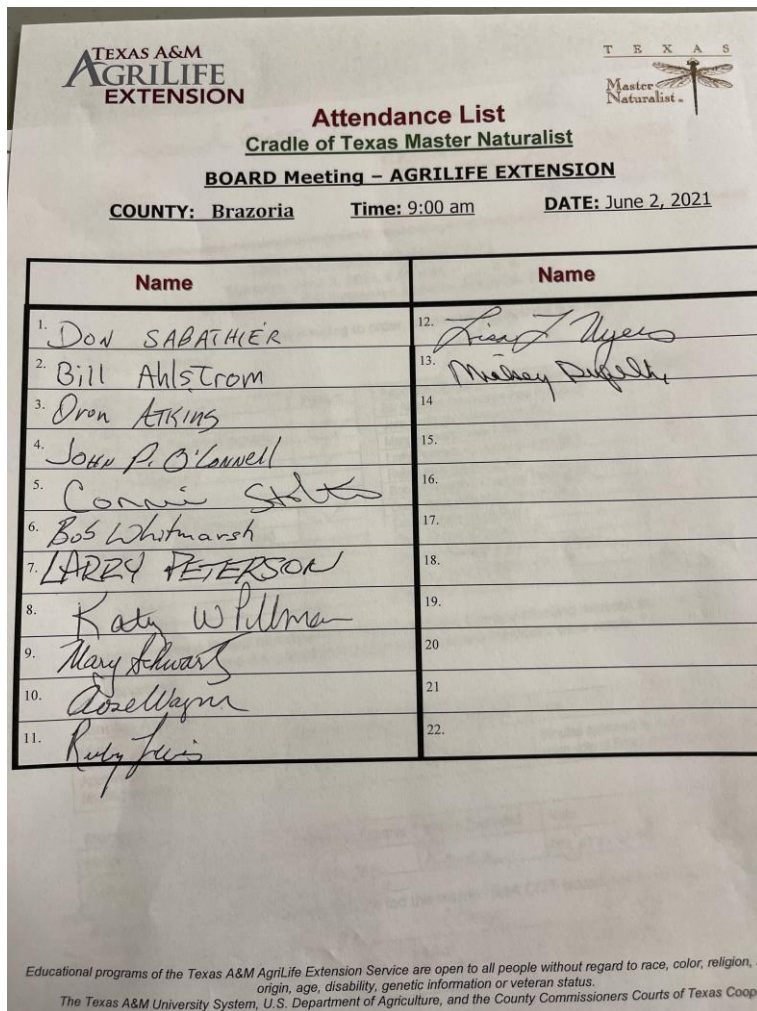 TEXAS A&M
AGRILIFE
EXTENSION
T E X A S
Master
Naturalist
Attendance List
Cradle of Texas Master Naturalist
BOARD Meeting – AGRILIFE EXTENSION
COUNTY: Brazoria Time: 9:00 am DATE: June 2, 2021
Name Name
1. DON SABATHIER 12. Lisa L Myers
2. Bill Ahlstrom 13.
3. Oron ATKINS 14
4. JOHN P. O'CONNell 15.
5. Connie 16.
6. Bob Whitmarsh 17.
7. LARRY PETERSON 18.
8. Katy W Pillman 19.
9. Mary Schwartz 20
10. Rose Wagner 21
11. Ruby Lewis 22.
Educational programs of the Texas A&M AgriLife Extension Service are open to all people without regard to race, color, religion,
origin, age, disability, genetic information or veteran status.
The Texas A&M University System, U.S. Department of Agriculture, and the County Commissioners Courts of Texas Coop